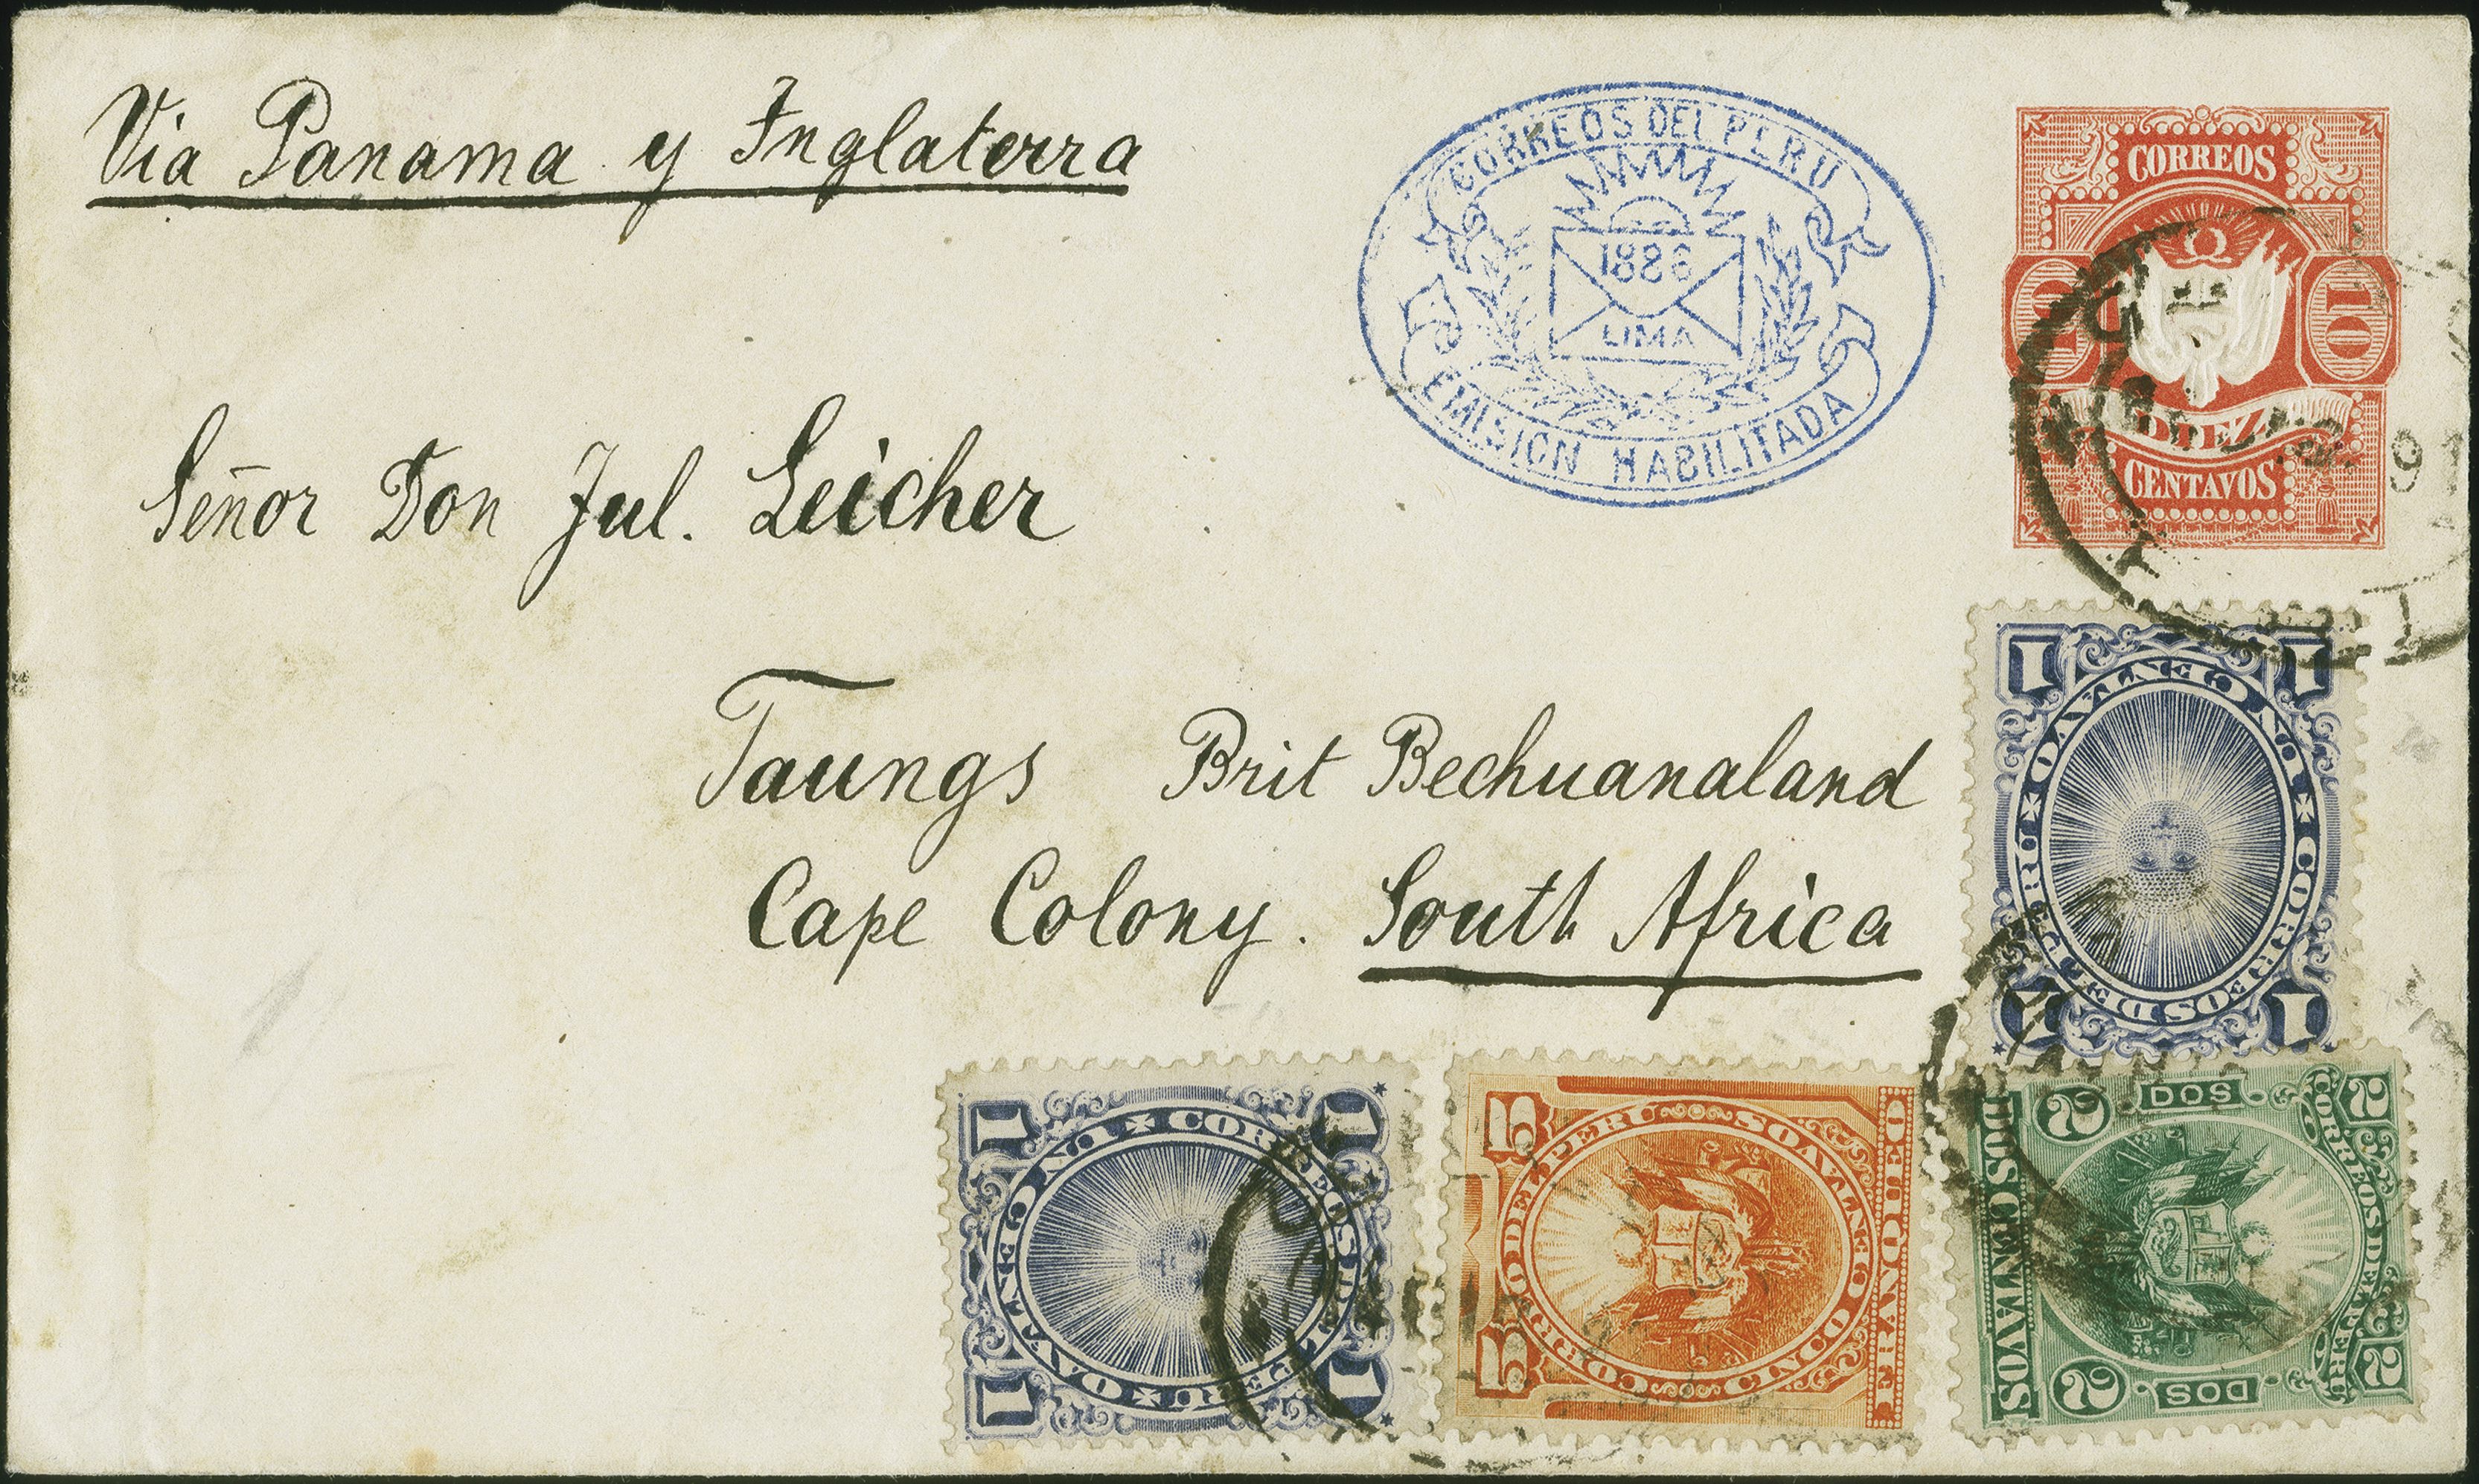 Via Panama y Inglaterra
CORREOS DEL PERU
1886
LIMA
EMISION HABILITADA
CORREOS
10 10
DIEZ
CENTAVOS
91
Señor Don Jul. Leicher
Taungs Brit Bechuanaland
Cape Colony. South Africa
1 1
UN CENTAVO
CORREOS DEL PERU
1 1
1 1
UN CENTAVO
CORREOS DEL PERU
1 1
5 5
CORREO DEL PERU
CINCO CENTAVOS
2 DOS 2
CORREOS DEL PERU
DOS CENTAVOS
2 DOS 2